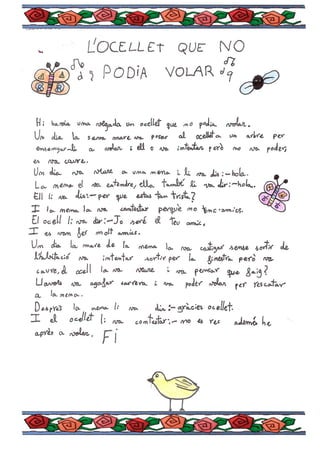 L'OCELLET QUE NO
PODIA VOLAR
Hi havia una vegada un ocellet que no podia volar.
Un dia la seva mare va posar al ocellet a un arbre per
ensenyar-li a volar i ell o va intentar però no va poder,
es va caure.
Un dia va veure a una nena i li va dir:-hola.
La nena el va entendre, ella també li va dir:-hola.
Ell li va dir:-per que estas tan trista?
I la nena la va contestar perquè no tinc amics.
El ocell li va dir:-Jo seré el teu amic,
I es van fer molt amics.
Un dia la mare de la nena la va castigar sense sortir de
l'habitació va intentar sortir per la finestra però va
caure, el ocell la va veure i va pensar que faig?
Llavors va agafar carrera i va poder volar per rescatar
a la nena.
Després la nena li va dir:-gràcies ocellet.
I el ocellet li va contestar:-no es res ademés he
après a volar. Fi